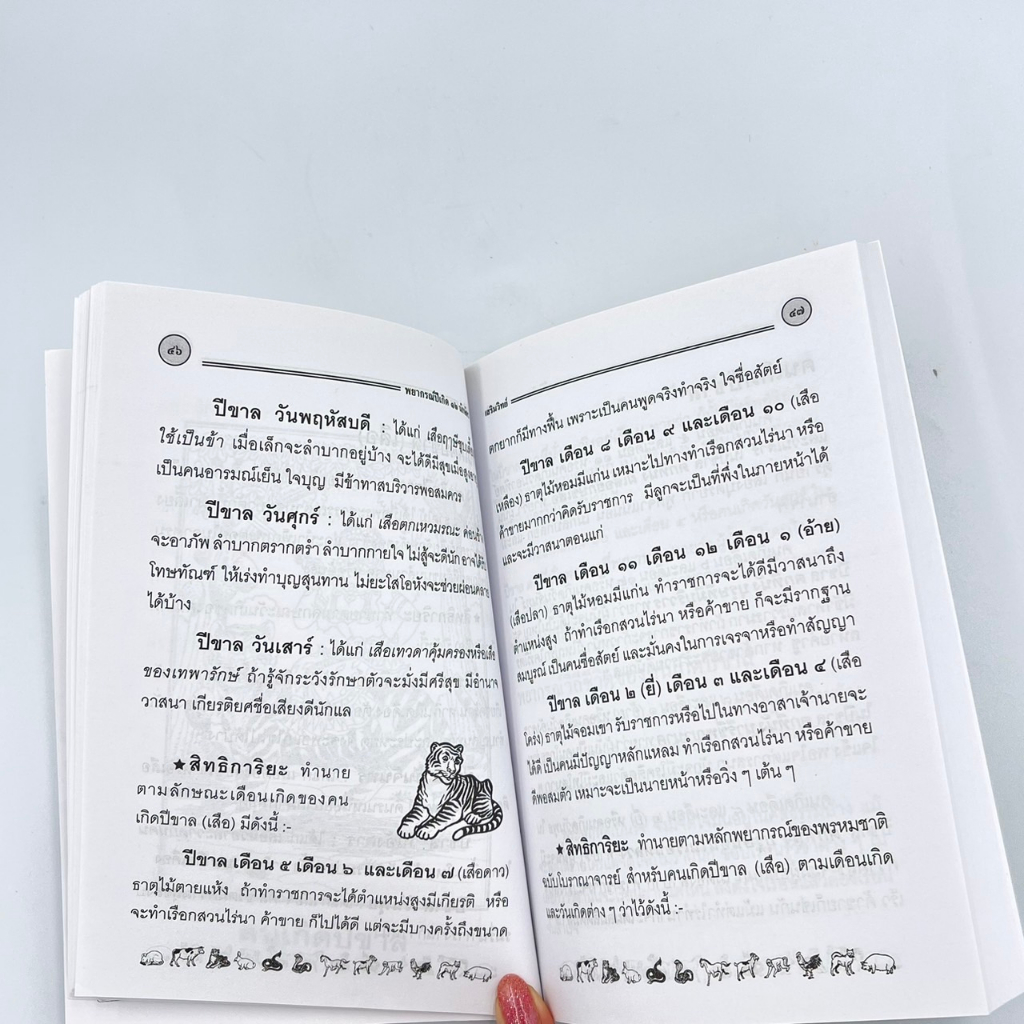 ๔๖
พยากรณ์ปีเกิด ๑๒ นักษัตร
ปีขาล วันพฤหัสบดี : ได้แก่ เสือฤๅษีชุบเลี้ยง
ใช้เป็นข้า เมื่อเล็กจะลำบากอยู่บ้าง จะได้ดีมีสุขเมื่อสูงอายุ
เป็นคนอารมณ์เย็น ใจบุญ มีข้าทาสบริวารพอสมควร
ปีขาล วันศุกร์ : ได้แก่ เสือตกเหวมรณะ ค่อนข้าง
จะอาภัพ ลำบากตรากตรำ ลำบากกายใจ ไม่สู้จะดีนัก อาจได้รับ
โทษทัณฑ์ ให้เร่งทำบุญสุนทาน ไม่ยะโสโอหังจะช่วยผ่อนคลาย
ได้บ้าง
ปีขาล วันเสาร์ : ได้แก่ เสือเทวดาคุ้มครองหรือเสือ
ของเทพารักษ์ ถ้ารู้จักระวังรักษาตัวจะมั่งมีศรีสุข มีอำนาจ
วาสนา เกียรติยศชื่อเสียงดีนักแล
★สิทธิการิยะ ทำนาย
ตามลักษณะเดือนเกิดของคน
เกิดปีขาล (เสือ) มีดังนี้ :-
ปีขาล เดือน ๕ เดือน ๖ และเดือน ๗ (เสือดาว)
ธาตุไม้ตายแห้ง ถ้าทำราชการจะได้ตำแหน่งสูงมีเกียรติ หรือ
จะทำเรือกสวนไร่นา ค้าขาย ก็ไปได้ดี แต่จะมีบางครั้งถึงขนาด
๔๗
เสริมวิทย์
ตกยากก็มีทางฟื้น เพราะเป็นคนพูดจริงทำจริง ใจซื่อสัตย์
ปีขาล เดือน ๘ เดือน ๙ และเดือน ๑๐ (เสือ
เหลือง) ธาตุไม้หอมมีแก่น เหมาะไปทางทำเรือกสวนไร่นา หรือ
ค้าขายมากกว่าคิดรับราชการ มีลูกจะเป็นที่พึ่งในภายหน้าได้
และจะมีวาสนาตอนแก่
ปีขาล เดือน ๑๑ เดือน ๑๒ เดือน ๑ (อ้าย)
(เสือปลา) ธาตุไม้หอมมีแก่น ทำราชการจะได้ดีมีวาสนาถึง
ตำแหน่งสูง ถ้าทำเรือกสวนไร่นา หรือค้าขาย ก็จะมีรากฐาน
สมบูรณ์ เป็นคนซื่อสัตย์ และมั่นคงในการเจรจาหรือทำสัญญา
ปีขาล เดือน ๒ (ยี่) เดือน ๓ และเดือน ๔ (เสือ
โคร่ง) ธาตุไม้จอมเขา รับราชการหรือไปในทางอาสาเจ้านายจะ
ได้ดี เป็นคนมีปัญญาหลักแหลม ทำเรือกสวนไร่นา หรือค้าขาย
ดีพอสมตัว เหมาะจะเป็นนายหน้าหรือวิ่ง ๆ เต้น ๆ
★สิทธิการิยะ ทำนายตามหลักพยากรณ์ของพรหมชาติ
ฉบับโบราณาจารย์ สำหรับคนเกิดปีขาล (เสือ) ตามเดือนเกิด
และวันเกิดต่าง ๆ ว่าไว้ดังนี้ :-